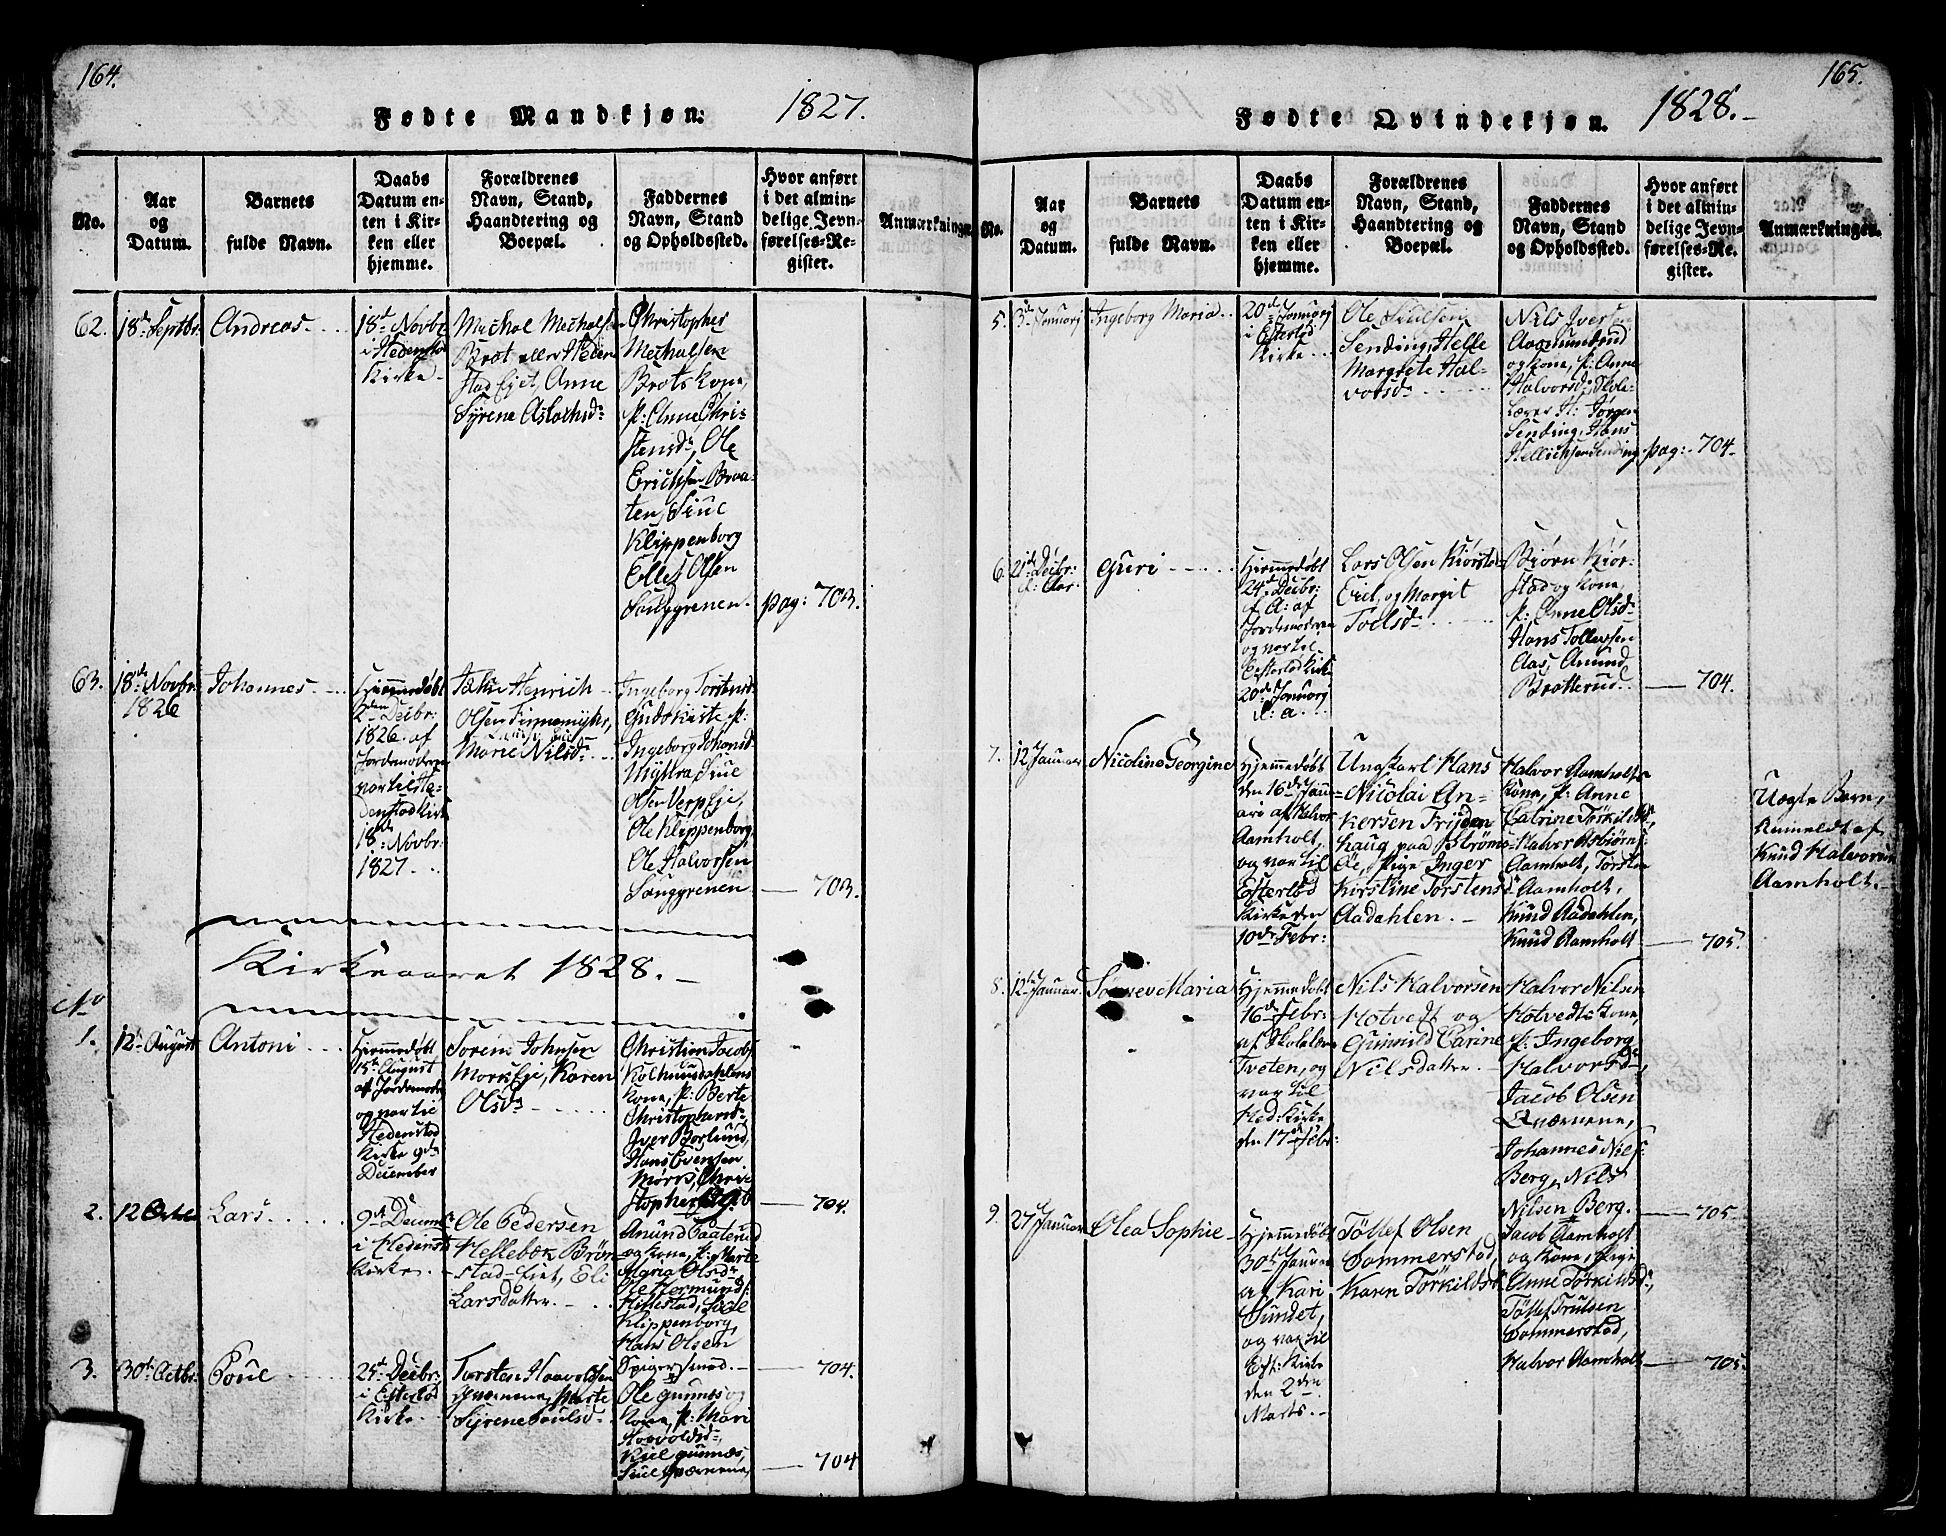 164.
Fødte Mandkjøn: 1827.
No.
Aar
og
Datum.
Barnets
fulde Navn.
Daabs
Datum en-
ten i Kir-
ken eller
hjemme.
Forældrenes
Navn, Stand,
Haandtering og
Boepæl.
Faddernes
Navn, Stand
og Opholdssted.
Hvor anført
i det almin-
delige Jevn-
førelses-Re-
gister.
Anmærkninger.
62.
18de Septbr:
Andreas
18de Novbr
i Hedenstad
Kirke
Mechal Mechalsen
Brøt eller Heden
stad Ejet, Anne
Syrene Aslachsdr
Christopher
Mechalsen
Brøts Kone,
p: Anne Chri-
stensdr, Ole
Erichsen Braa-
ten,
Klippenborg
Ellef Olsen
Sauggrenen.
pag: 703.
63.
18de Novbr
1826
Johannes
Hjemmedøbt
2den Decbr:
1826 af
Jordemoderen
var til He-
denstad Kirke
18de Novbr:
1827.
Henrich
Olsen
Marie Nilsdr
Ingeborg Torstensdr
Gudskiste, p:
Ingeborg Johansd
Olsen Verp Eje,
Ole Klippenborg,
Ole Halvorsen
Sauggrenen
703.
Kirkeaaret 1828.
No
1.
12te August
Antoni
Hjemmedøbt
15de August
af Jordemoder
og var til
Hedenstad
Kirke 9de
December
Søren Johnsen
Mork Eje, Karen
Olsdr
Christian Jacobs
Kolhuusdahlens
Kone, p: Berte
Christophersd:
Iver Borlund,
Hans Evensen
Mørris, Chri-
stopher
704.
2.
12 Octbr
Lars
9de Decemr
i Hedenst
Kirke
Ole Pedersen
Hellebæk Brøn-
stad-Ejet, Eli
Larsdatter.
Amund Taaterud
og Kone, p: Marte
Maria Olsdr
Ole Hermunds:
Hillestad,
Klippenborg,
Hans Olsen
Spigersmed.
704.
3.
30te Octbr:
Poul
25de Decbr:
i Efterlød
Kirke
Torsten Haavoldsen
Qværnene, Marte
Syrene Poulsd
Ole Gunnes og
Kone, p: Mari
Haavoldsd:,
Gunnes,
Qværnene,
704
165.
Fødte Qvindekjøn. 1828.
No.
Aar
og
Datum.
Barnets
fulde Navn.
Daabs
Datum en-
ten i Kir-
ken eller
hjemme.
Forældrenes
Navn, Stand,
Haandtering og
Boepæl.
Faddernes
Navn, Stand
og Opholdssted.
Hvor anført
i det almin-
delige Jevn-
førelses-Re-
gister.
Anmærkninger.
5.
3de Januarj
Ingeborg Maria
20de Januarj
i Efterlød
Kirke
Ole
Sending, Helle
Margrete Hal-
vorsdr
Nils Iversen
Aasmundrud
og Kone, p: Anne
Halvorsdr, Skole-
Lærer H: Jørgen
Sending, Hans
Hellichsen Sending
pag: 704
6.
21de Decbr:
Guri
Hjemmedøbt
24de Decbr:
f A: af
Jordemoderen
og var til
Efterlød Kirke
20de Januarj
d: a.
Lars Olsen Kiørstad
Eiet, og Margit
Toelsdr
Biørn Kiør-
stad og Kone,
p: Anne Olsdr
Hans Tollevsen
Aas, Amund
Brotterud
704.
7.
12 Januar
Nicoline Georgine
Hjemmedøbt
den 16de Janu-
ari af Halvor
Aamholt,
og var til
Efterlød
Kirke den
10de Febr:
Ungkarl Hans
Nicolai An-
kersen Frijden
haug paa Strøms-
Øe, Pige Inger
Kirstine Torstensd
Aadahlen.
Halvor Aamholts
Kone, p: Anne
Catrine Torkildsd,
Halvor Asbiørns:
Aamholt, Torsten
Aamholt,
Knud Aadahlen,
Knud Aamholt
705.
Uægte Barn,
Anmeldt af
Knud Halvorsen
Aamholt.
8.
12te Januar.
Maria
Hjemmedøbt
16de Febr:
af Skolelær
Tveten, og
var til
Hed: Kirke
den 17de Febr:
Nils Halvorsen
Hotvedt og
Gunnild Carine
Nilsdatter
Halvor Nilsen
Hotvedts Kone,
p: Ingeborg
Halvorsdr,
Jacob Olsen
Qværnene,
Johannes Niels:
Berg, Nils
Nilsen Berg.
705.
9.
27 Januar
Olea Sophie
Hjemmedøbt
30te Januar
af Kari
Sundet,
og var til
Eft: Kirke
den 2den
Marts.
Tollef Olsen
Sommerstad,
Karen Torkildsdr
Jacob Aamholt
og Kone, Pige
Anne Torkildsdr,
Tollef Trulsen
Sommerstad,
Halvor Aamholt
705.